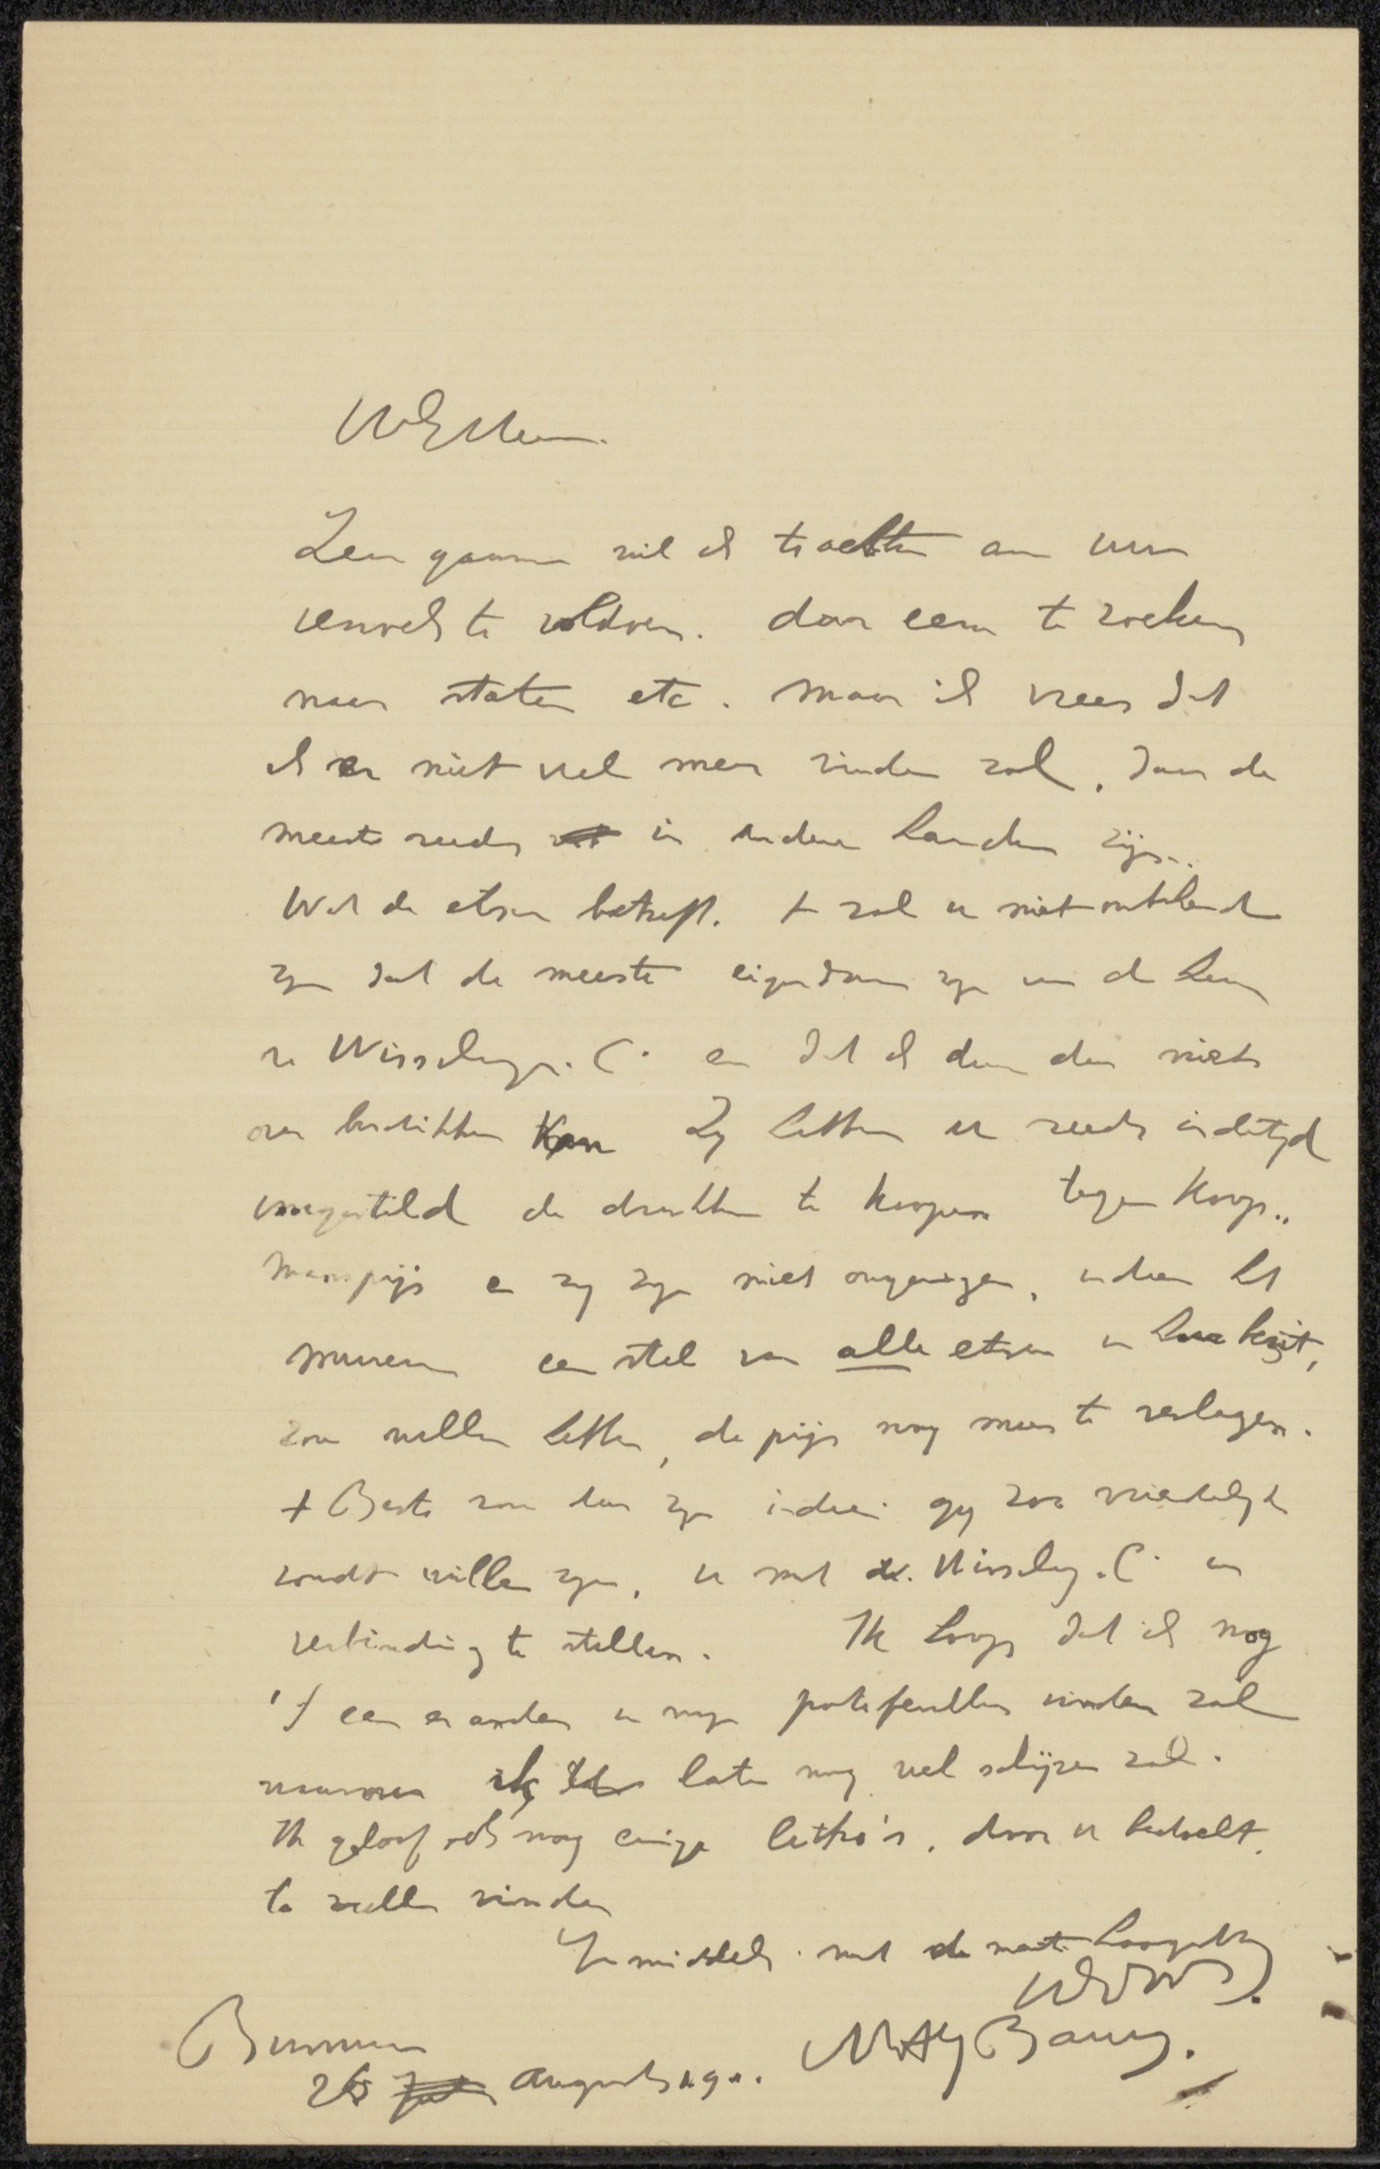 WelEd Heer.
Zeer gaarne wil ik trachten aan uw
verzoek te voldoen. door eens te zoeken
naar staten etc. maar ik vrees dat
ik er niet veel meer vinden zal, daar de
meeste reeds in andere handen zijn..
Wat de etsen betreft. 't zal u niet onbekend
zyn dat de meeste eigendom zyn van de heeren
v. Wisselingh. C° en dat ik dus daar niet
over beschikken kan Zy hebben er reeds indertyd
voorgesteld de drukken te koopen tegen koop..
mansprijs en zy zyn niet ongenegen, indien het
museum een stel van alle etsen in bezit,
zou willen hebben, de prijs nog meer te verlagen.
't Beste zou dus zyn indien gy zoo vriendelijk
zoudt willen zyn, u met v. Wisseling. C° in
verbinding te stellen. Ik hoop dat ik nog
't een en ander in myn portefeuilles vinden zal
waarover ik later nog wel schrijven zal.
Ik geloof ook nog eenige litho's, door u bedoelt,
te zullen vinden
Inmiddels. met de meeste hoogachting
UEdDW.
MAJ Bauer.
Bussum
26 Augustus 19